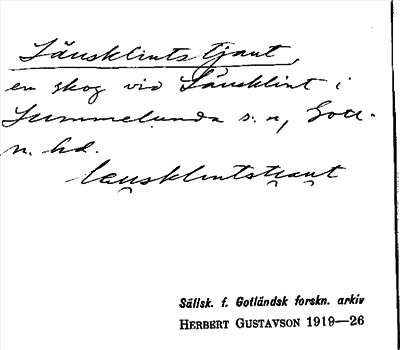 Länsklintstjaut,
en skog vid Länsklint i
Lummelunda s:n, Gotl.
n. hd.
länsklintstjaut
Sällsk. f. Gotländsk forskn. arkiv
HERBERT GUSTAVSON 1919—26